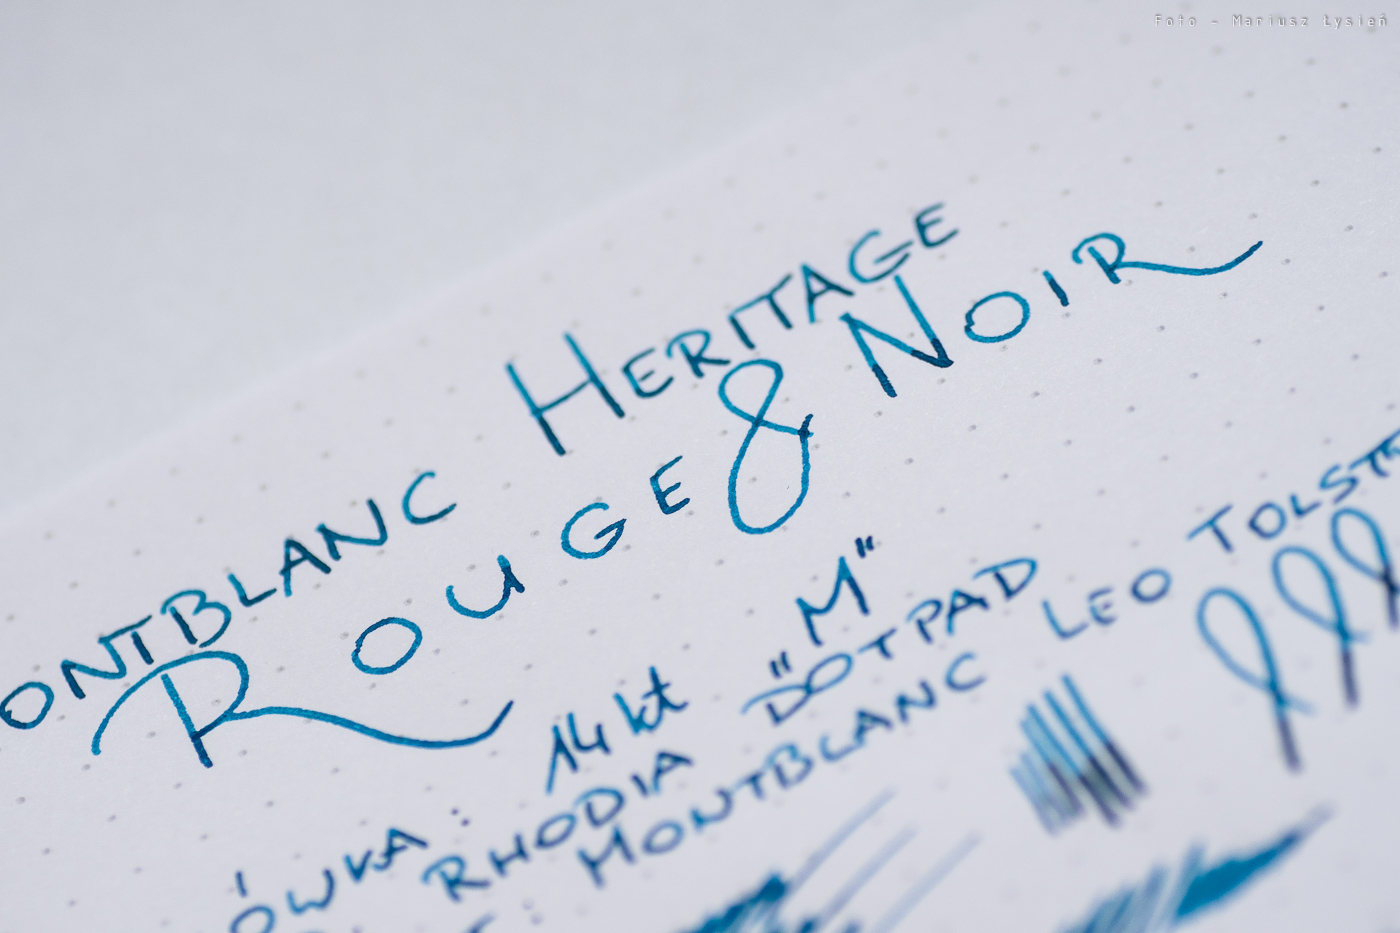 Foto - Mariusz Łysień
ONTBLANC HERITAGE
ROUGE & NOIR
ÓWKA: 14 kt "M"
RHODIA DOTPAD
MONTBLANC LEO TOLST